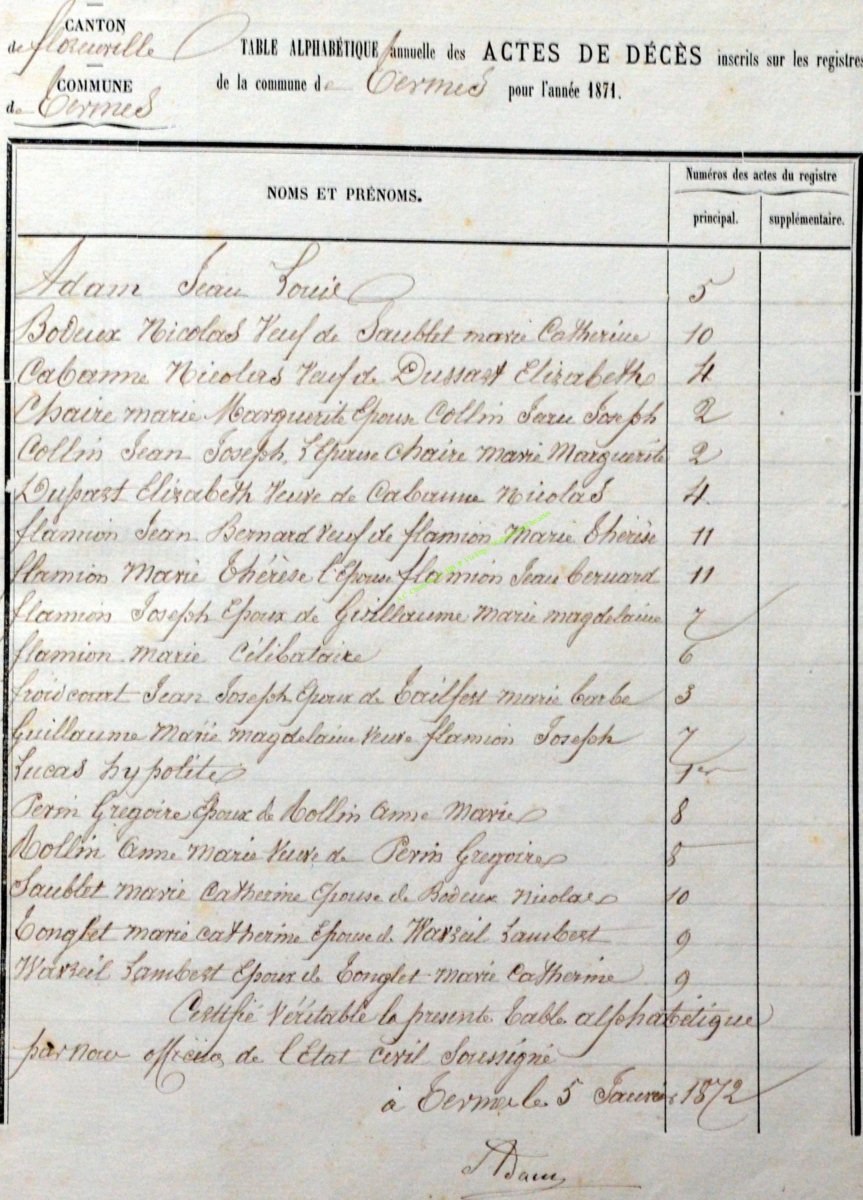 CANTON
de florenville
COMMUNE
de Termes
TABLE ALPHABÉTIQUE annuelle des ACTES DE DÉCÈS inscrits sur les registres
de la commune de Termes pour l'année 1871.
NOMS ET PRÉNOMS.
Numéros des actes du registre
principal. supplémentaire.
Adam Jean Louis 5
Bodeux Nicolas Veuf de Saublet marie Catherine 10
Cabanne Nicolas Veuf de Dussart Elizabeth 4
Chaire marie Marguerite Epouse Collin Jean Joseph 2
Collin Jean Joseph L'Epouse Chaire marie Marguerite 2
Dussart Elizabeth Veuve de Cabanne Nicolas 4
flamion Jean Bernard Veuf de flamion Marie Thérèse 11
flamion Marie Thérèse l'Epouse flamion Jean bernard 11
flamion Joseph Epoux de Guillaume Marie magdelaine 7
flamion marie Célibataire 6
froidcourt Jean Joseph Epoux de Tailfert marie barbe 3
Guillaume Marie magdelaine veuve flamion Joseph 7
Lucas hypolite 1er
Perin Gregoire Epoux de Rollin Anne Marie 8
Rollin Anne Marie Veuve de Perin Gregoire 8
Saublet marie Catherine Epouse de Bodeux Nicolas 10
Tonglet marie catherine Epouse d. Warzeil Lambert 9
Warzeil Lambert Epoux de Tonglet marie Catherine 9
Certifié Véritable la presente Table alphabétique
par nous officier de l'Etat civil Soussigné
à Termes le 5 Janvier 1872
Adam